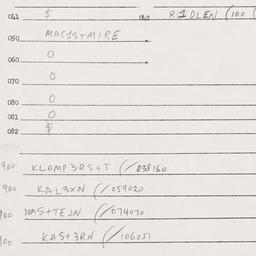 041 $ 042 R1DLEN (100
050 MAC1S+MIRE
060 O
070 O
080 O
081 O
082 $
900 KLOMP3RS+T (/038160
900 KAL3XN (/059020
900 S+TEJN (/074070
900 KAS+3RN (/106051